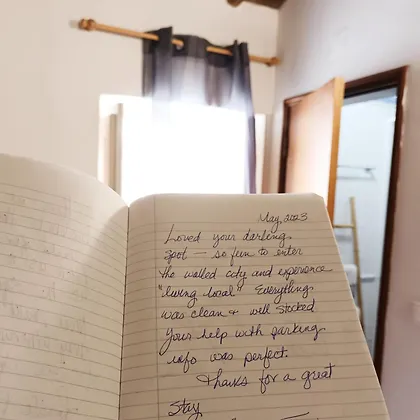 May, 2023
Loved your darling
spot — so fun to enter
the walled city and experience
"living local." Everything
was clean + well stocked
Your help with parking
info was perfect.
Thanks for a great
stay